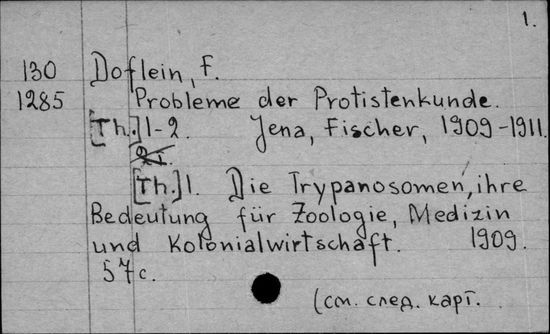 1.
130 Doflein, F.
1285 Probleme der Protistenkunde.
[Th.] 1-2. Jena, Fischer, 1909-1911.
[Th.] 1. Die Trypanosomen, ihre
Bedeutung für Zoologie, Medizin
und Kolonialwirtschaft. 1909.
57 c.
(см. след. карт.